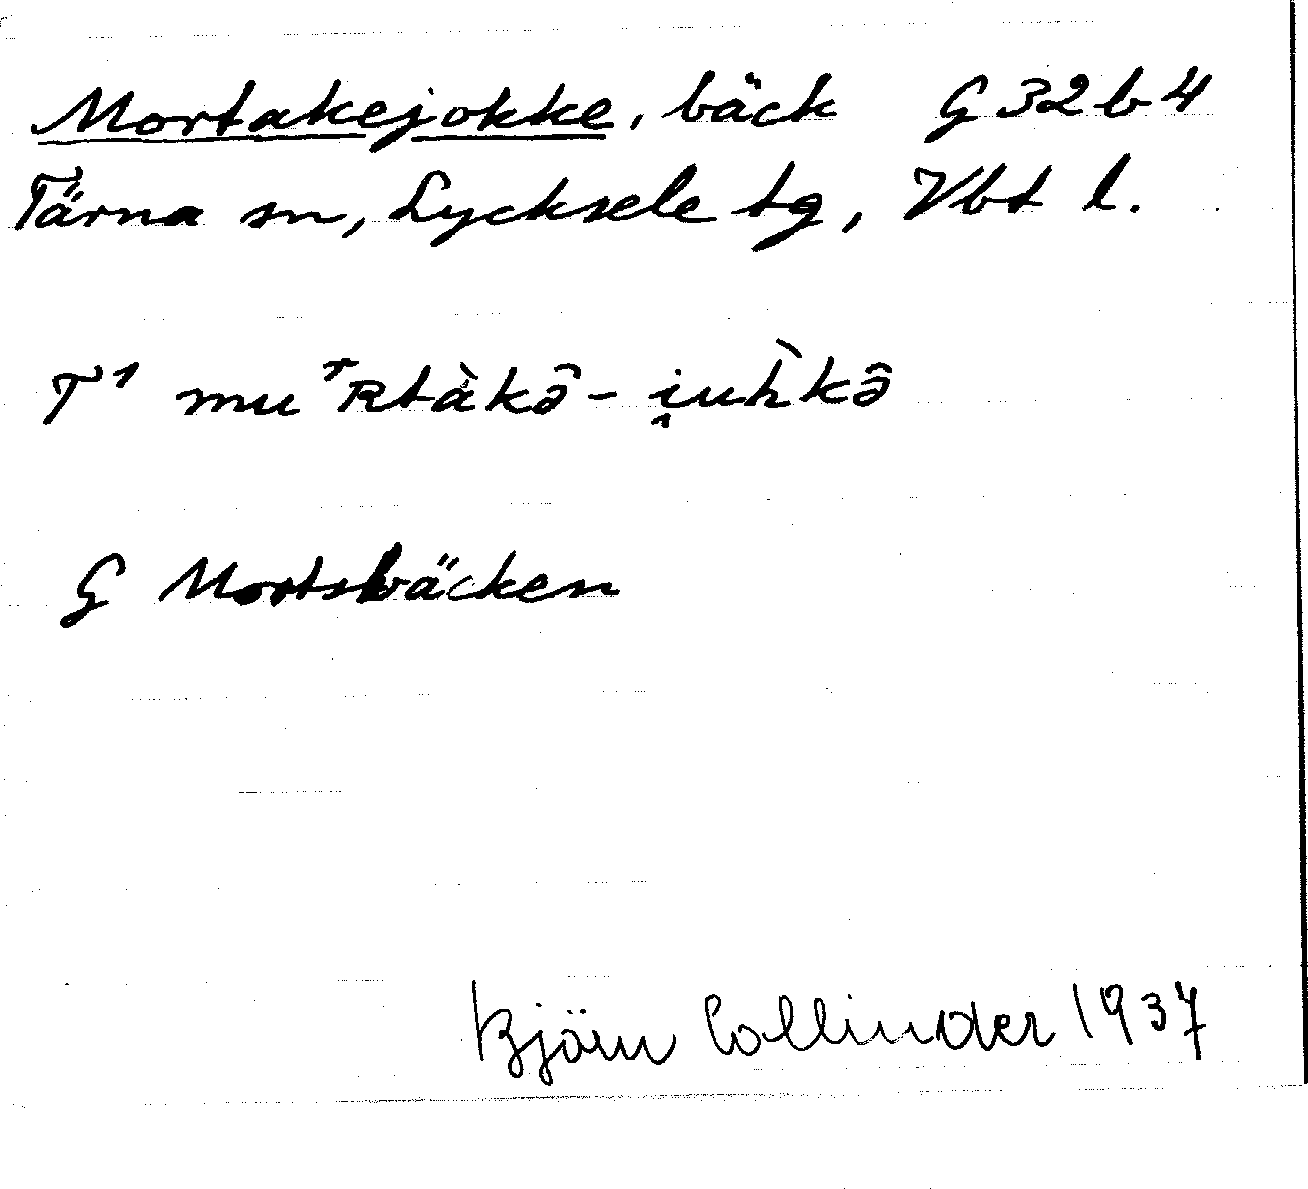 Mortakejokke, bäck G 32 b 4
Tärna sn, Lycksele tg, Vbt l.
T¹ mu ͭʀtàkə̑ - i̭uh̀kə̑
G Mortsbäcken
Björn Collinder 1937